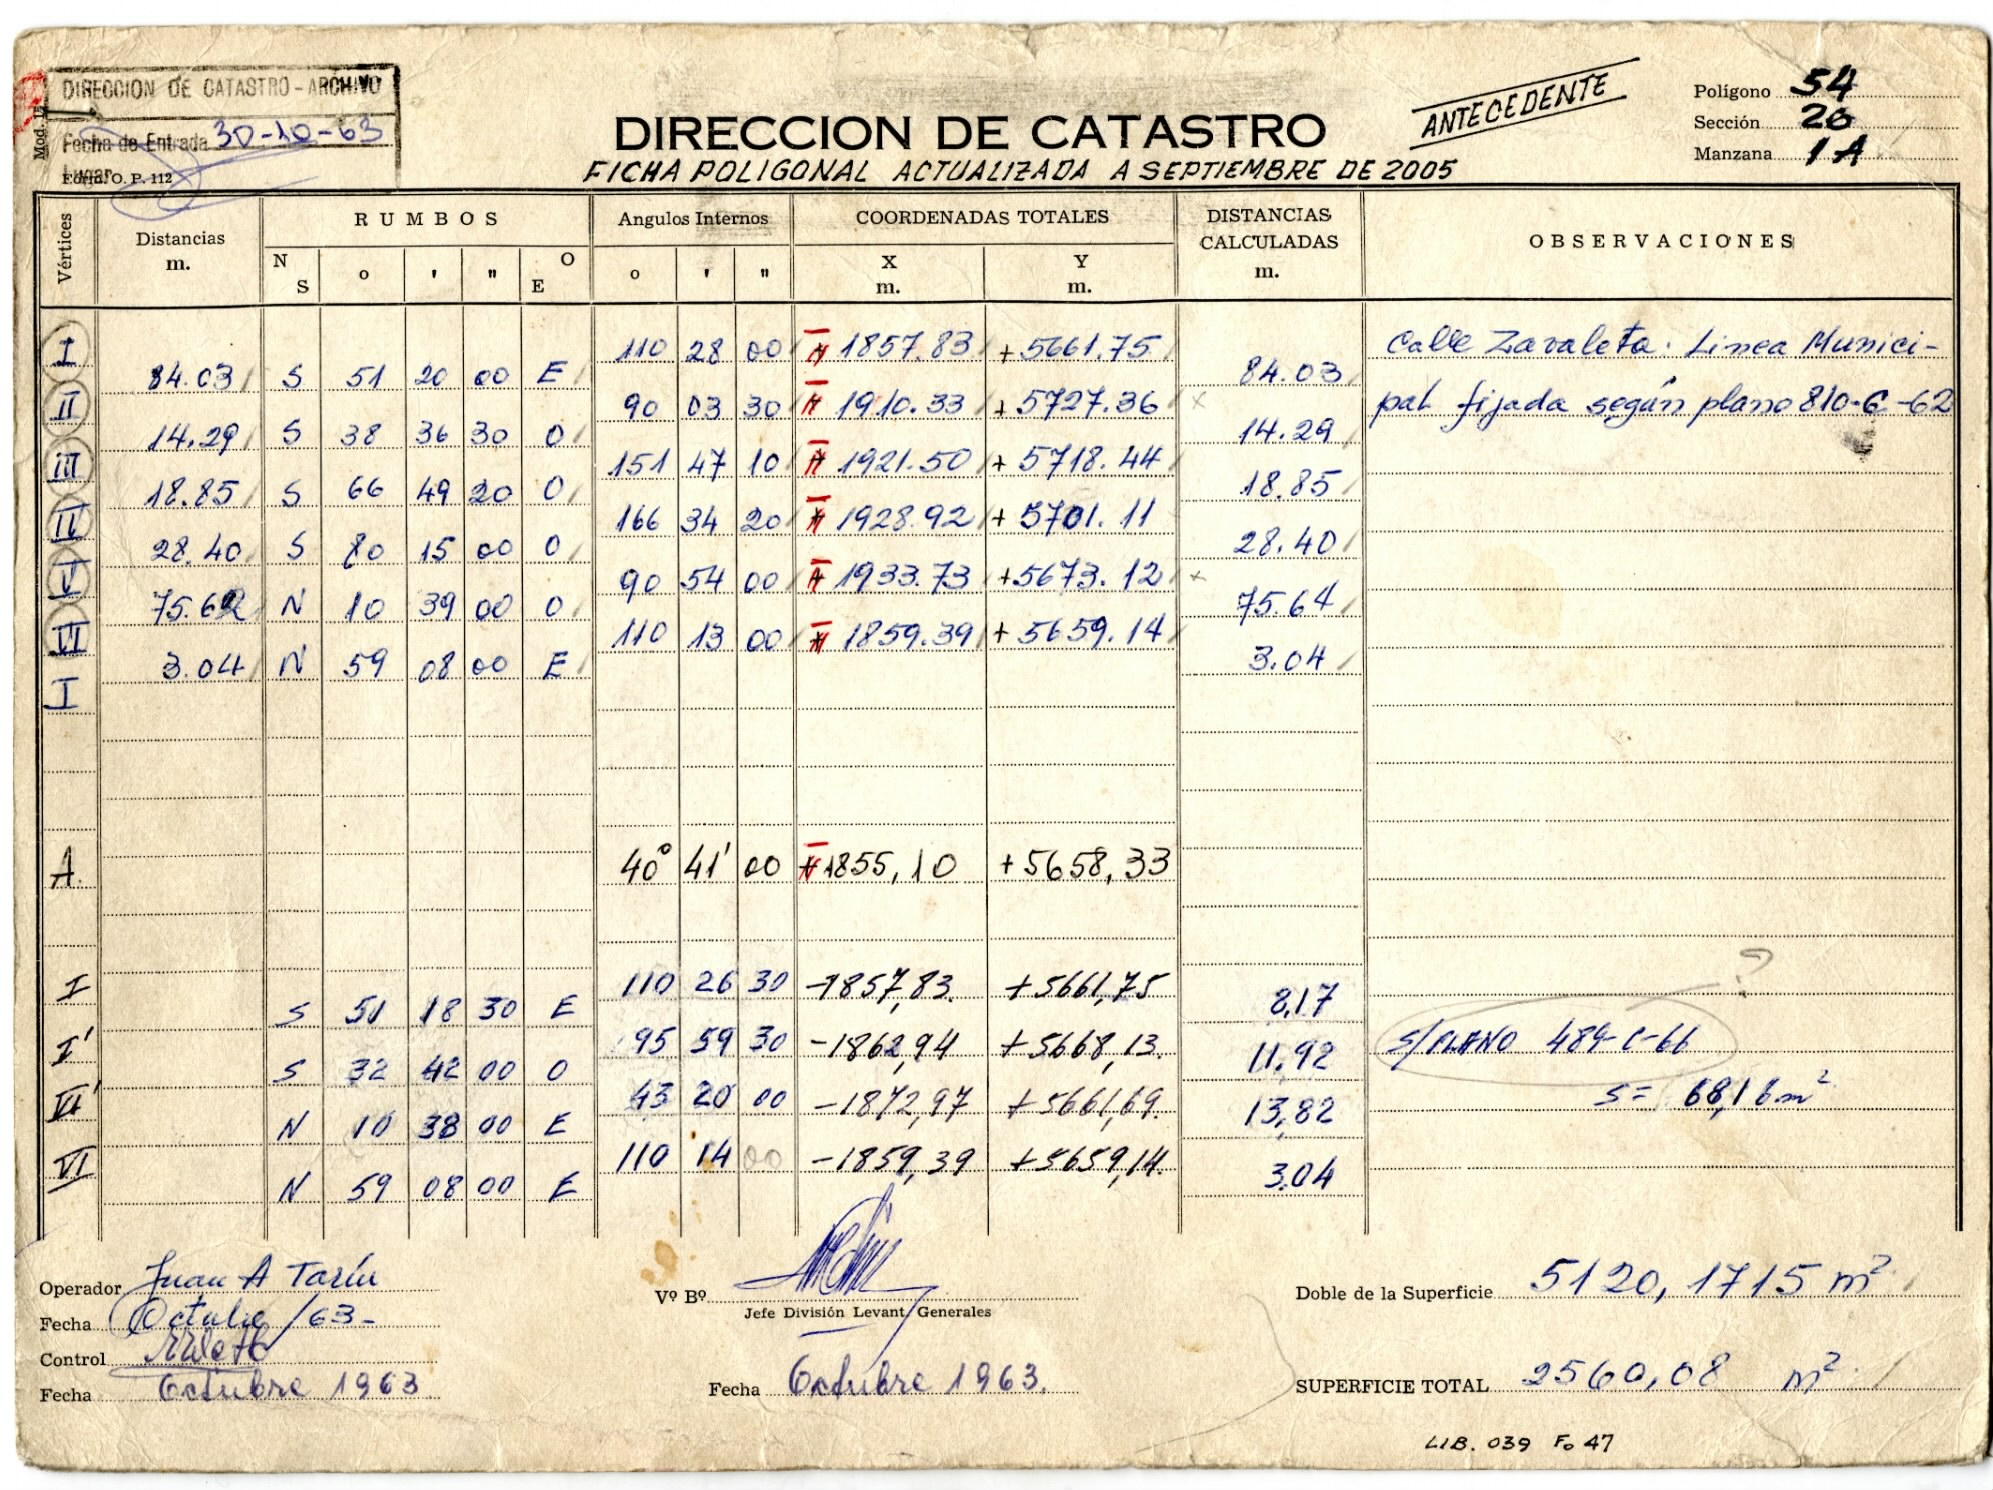 DIRECCION DE CATASTRO - ARCHIVO
Fecha de Entrada 30-10-63
Lugar
Mod. 15
Form. O. P. 112
DIRECCION DE CATASTRO
FICHA POLIGONAL ACTUALIZADA A SEPTIEMBRE DE 2005
ANTECEDENTE
Polígono 54
Sección 26
Manzana 1A
Vértices Distancias m. RUMBOS Angulos Internos COORDENADAS TOTALES DISTANCIAS CALCULADAS m. OBSERVACIONES
N S o ' " O E o ' " X m. Y m.
I 110 28 00 - 1857.83 + 5661.75 Calle Zavaleta. Linea Munici-
84.03 S 51 20 00 E 84.03
II 90 03 30 - 1910.33 + 5727.36 pal fijada según plano 810-C-62
14.29 S 38 36 30 O 14.29
III 151 47 10 - 1921.50 + 5718.44
18.85 S 66 49 20 O 18.85
IV 166 34 20 - 1928.92 + 5701.11
28.40 S 80 15 00 O 28.40
V 90 54 00 - 1933.73 + 5673.12
75.62 N 10 39 00 O 75.64
VI 110 13 00 - 1859.39 + 5659.14
3.04 N 59 08 00 E 3.04
I
A 40° 41' 00 - 1855,10 + 5658,33
I 110 26 30 -1857,83. +5661,75
S 51 18 30 E 8,17
I' 95 59 30 -1862,94 +5668,13. S/PLANO 484-C-66
S 32 42 00 O 11,92
VI' 43 20 00 -1872,97 +5661,69. S= 68,18 m²
N 10 38 00 E 13,82
VI 110 14 00 -1859,39 +5659,14. ?
N 59 08 00 E 3.04
Operador Juan A Tarín
Fecha Octubre/63-
Control
Fecha Octubre 1963
Vº Bº
Jefe División Levant. Generales
Fecha Octubre 1963.
Doble de la Superficie 5120,1715 m²
SUPERFICIE TOTAL 2560,08 m²
LIB. 039 Fo 47